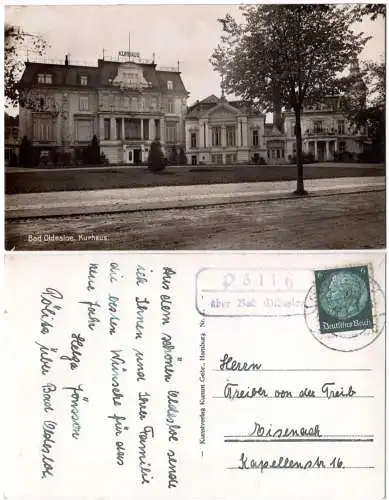 KURHAUS
Bad Oldesloe. Kurhaus.
Aus dem schönen Oldesloe sende
ich Ihnen und Ihrer Familie
die besten Wünsche für das
neue Jahr
Helga Jönsson
Pölitz über Bad Oldesloe
Kunstverlag Kumm Gebr., Hamburg Nr.
Pölitz
über Bad Oldesloe
6
Deutsches Reich
Herrn
Freiherr von der Treib
Eisenach
Kapellenstr 16.